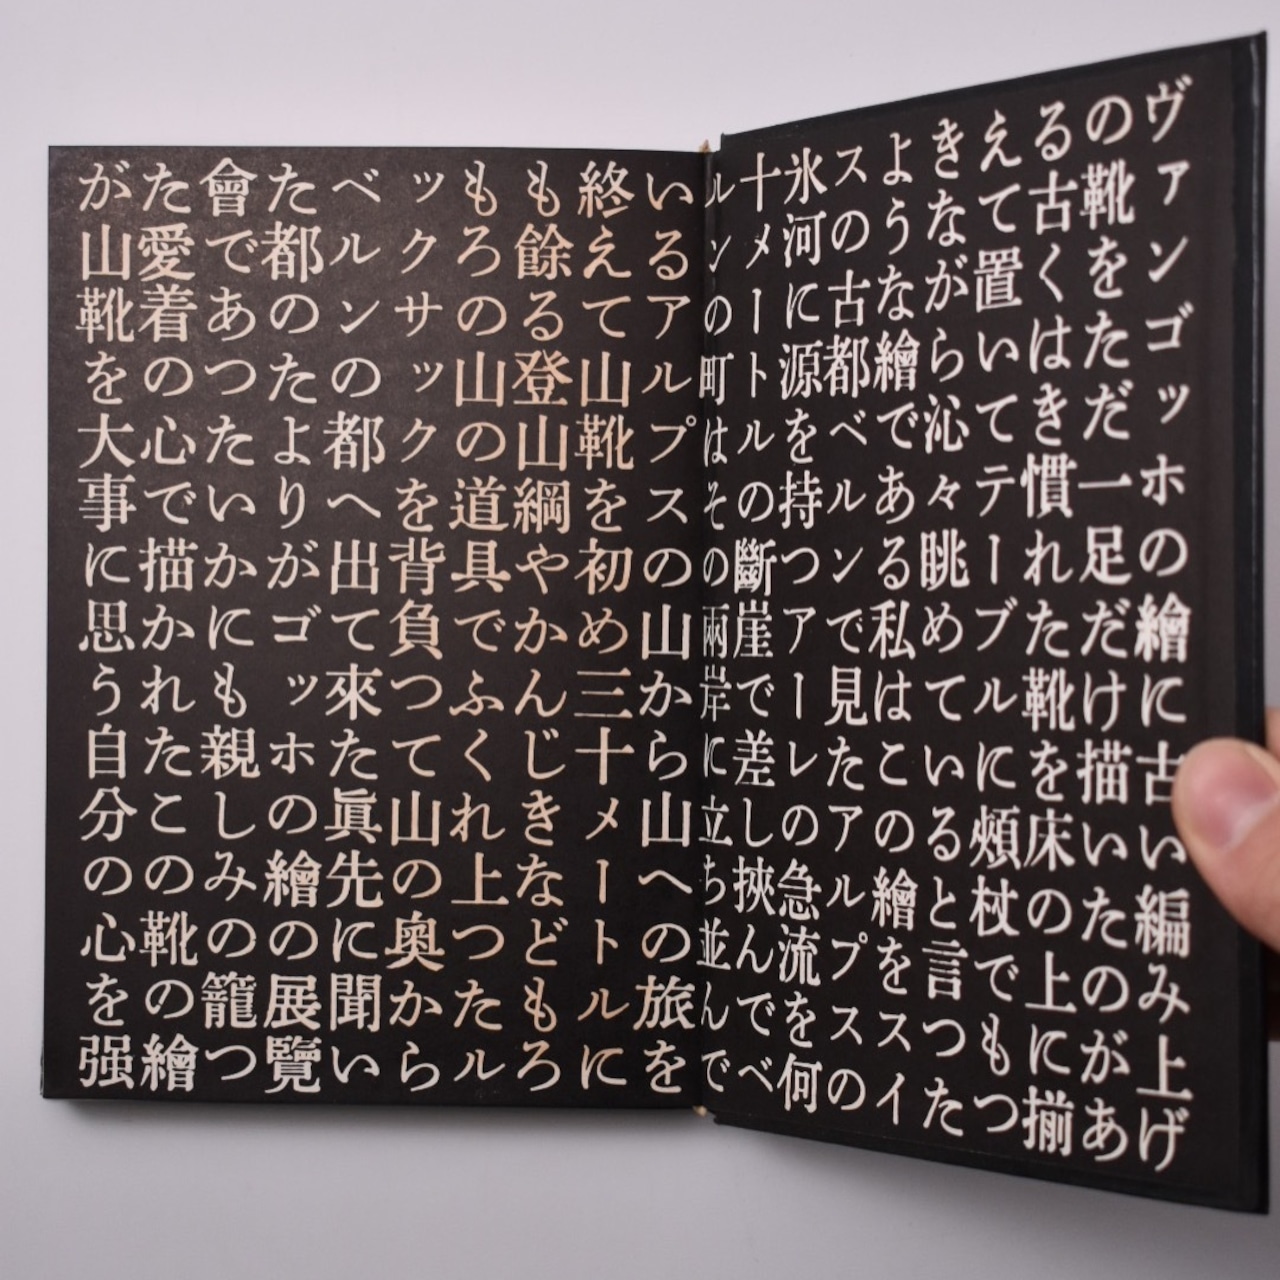 ヴァンゴッホの繪に古い編み上げ
の靴をただ一足だけ描いたのがあ
る古くはき慣れた靴を床の上に揃
えて置いてテーブルに頰杖でもつ
きながら沁々眺めていると言つた
ような繪である私はこの繪をスイ
スの古都ベルンで見たアルプスの
氷河に源を持つアーレの急流を何
十メートルの斷崖で差し挾んでベ
ルンの町はその兩岸に立ち並んで
いるアルプスの山から山への旅を
終えて山靴を初め三十メートルに
も餘る登山綱やかんじきなどもろ
もろの山の道具でふくれ上つたル
ックサックを背負つて山の奥から
ベルンの都へ出て來た眞先に聞い
た都のたよりがゴッホの繪の展覽
會であつたいかにも親しみの籠つ
た愛着の心で描かれたこの靴の繪
が山靴を大事に思う自分の心を强